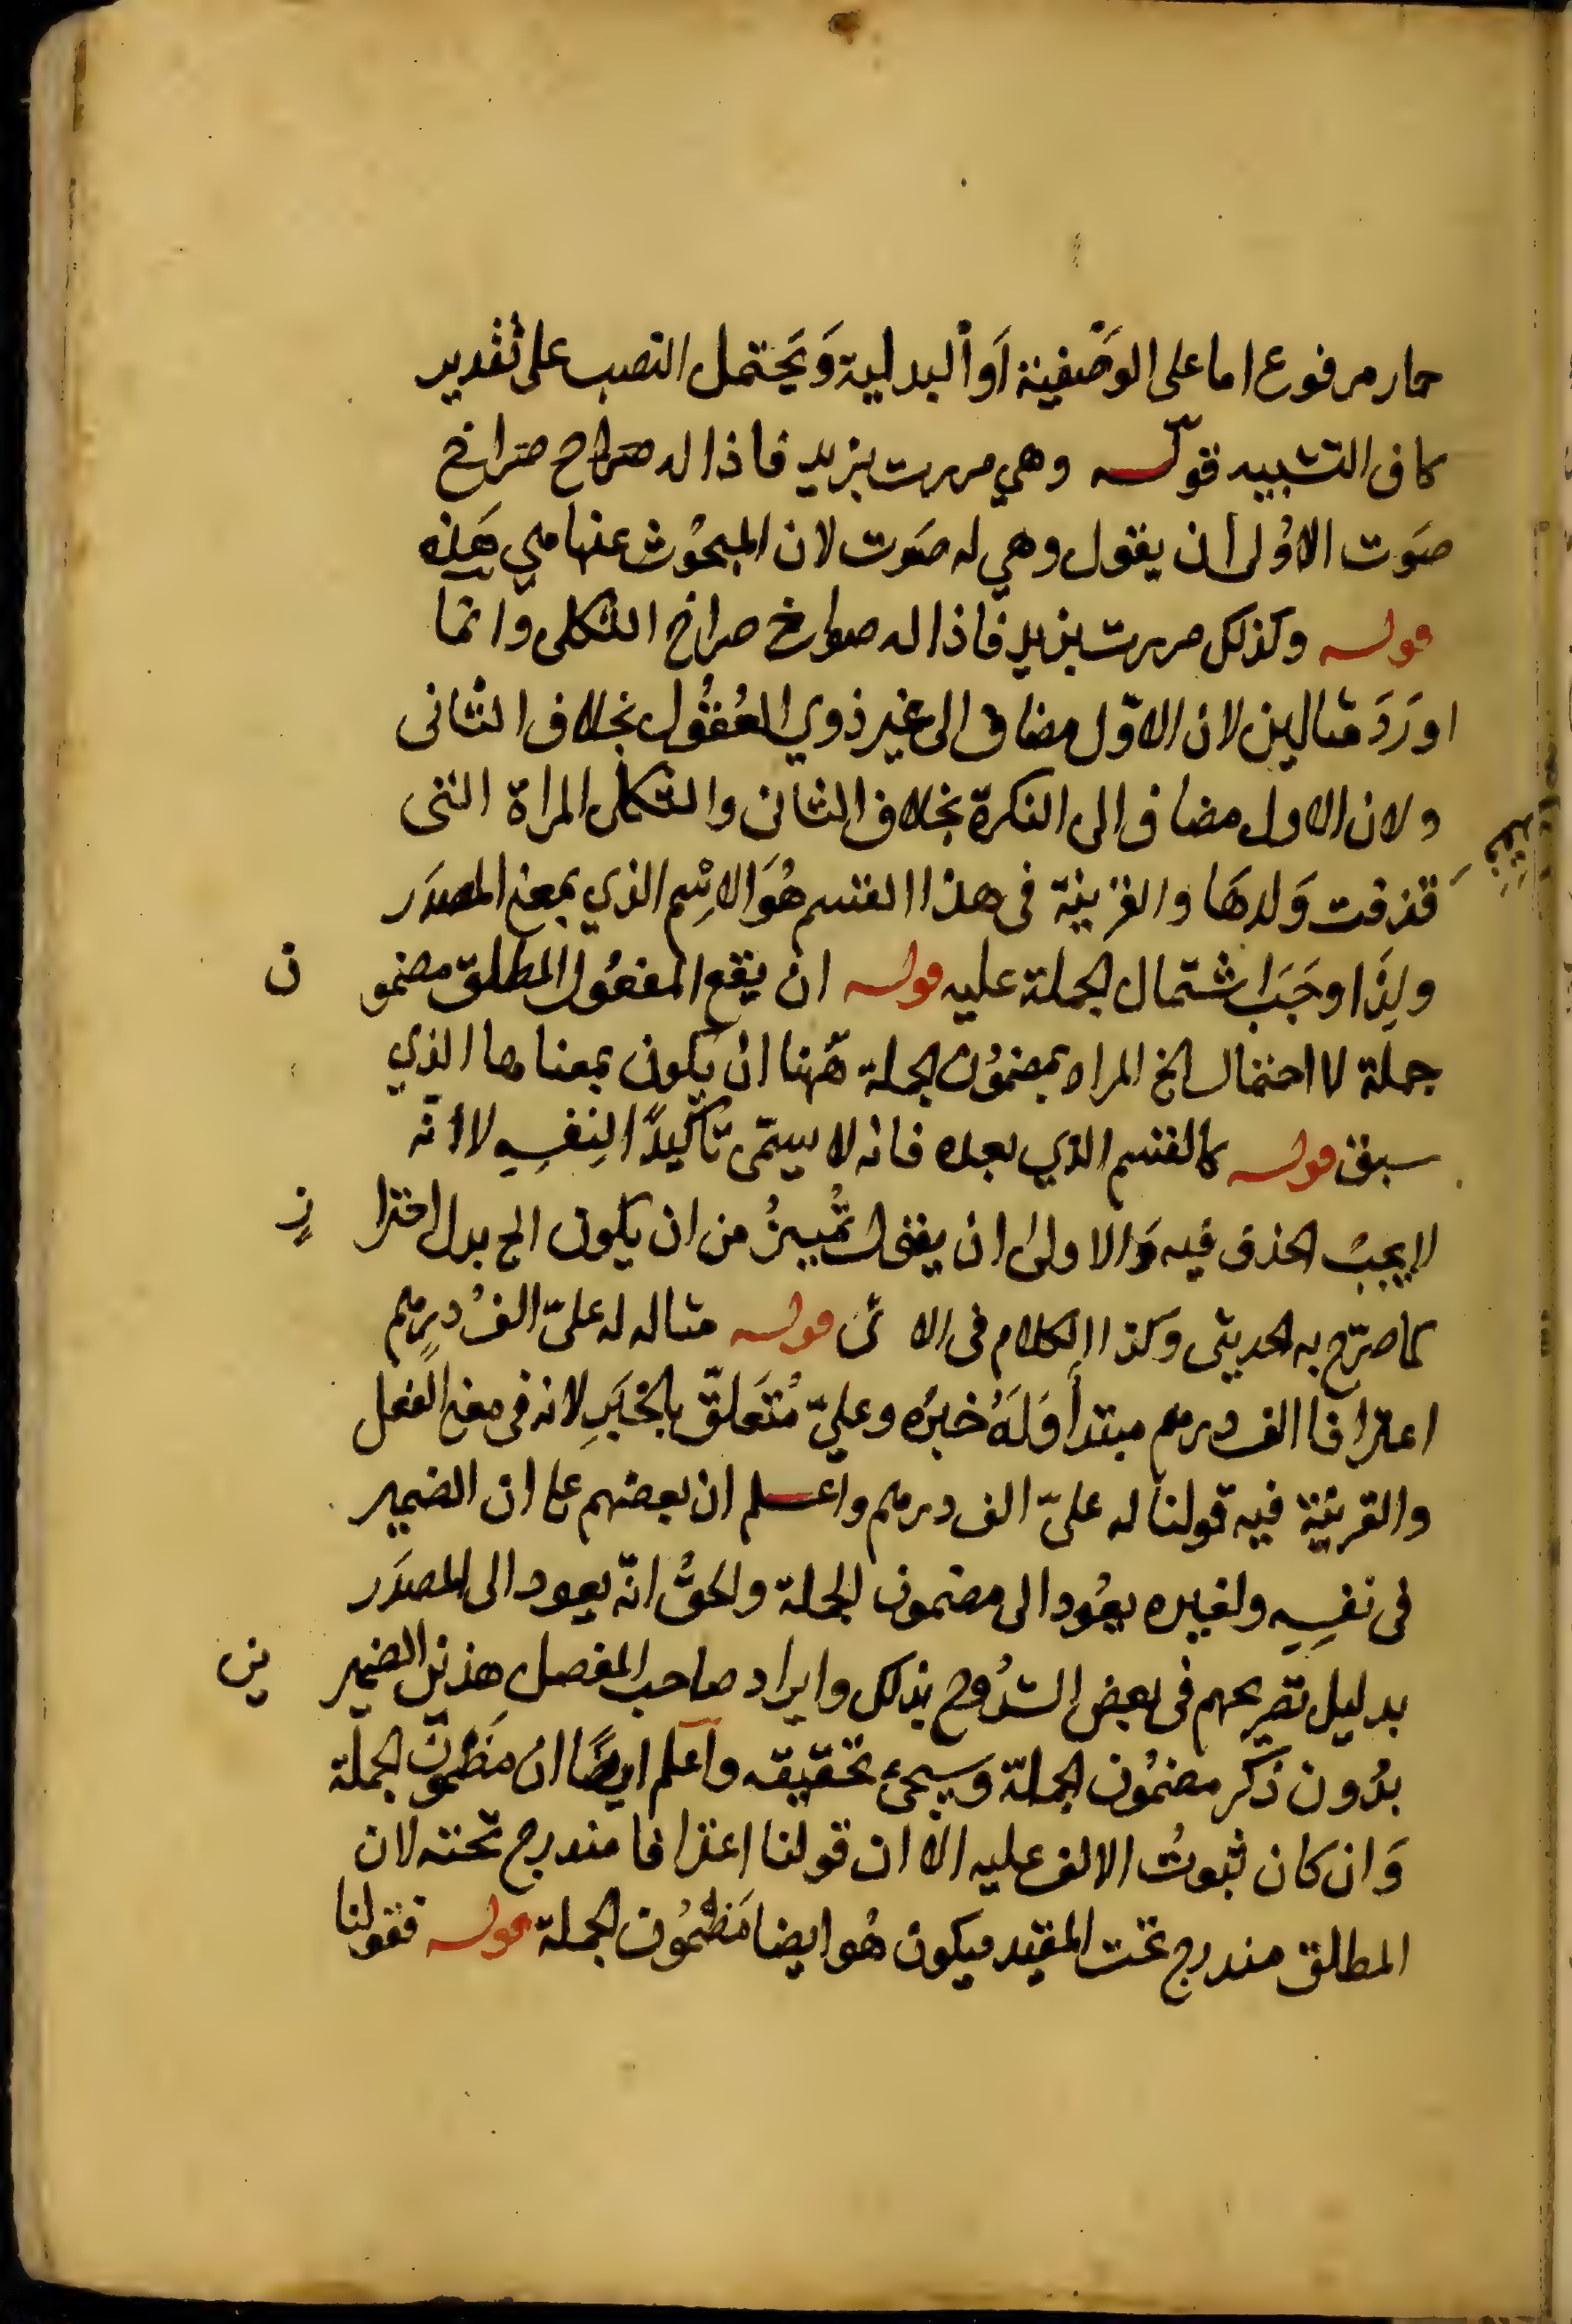 حمار مرفوع اما على الوَصْفية اَو البدلية وَيحتمل النصب على تقدير
كاف التشبيه قولـه وهي مررت بزيد فاذا له صراخ صراخ
صَوت الاوُلى ان يقول وهي له صَوت لان المبحُوث عنها هي هَذه
قوله وكذلك مررت بزيد فاذا له صراخ صراخ الثكلى وانما
اورَدَ مثالين لان الاوّل مضاف الى غير ذوي العُقُول بخلاف الثانى
ولان الاول مضاف الى النكرة بخلاف الثانى والثكلى المراة التى
قذفت وَلدهَا والقرينة فى هذا القسم هُوَ الاِسْم الذي بمعنى المصدَر
ولِذَا وجَبَ اشتمال الجملة عليه قوله ان يقع المفعُول المطلق مضمو ن
جملة لا احتمال الخ المراد بمضمُون الجملة هٰهنا ان يكون بمعناها الذي
سبق قوله كالقسم الذي بعده فانه لا يسمّى تاكيدًا لِنفسِهِ لا انّه
لا يجبُ الحذف فيه وَالاولى ان يقى من ان يكون الخ بدل احترا زٍ
كما صرّح به الحديثى وكذا الكلام فى الا تى قوله مثاله له علىّ الفُ دِرهم
اعترافا الف درهم مبتدأ وَلَهُ خبرُه وعليّ مُتعَلقّ بالخبَرِ لانه فى معنى الفعل
والقرينة فيه قولنا له علىّ الف درهم واعـلم ان بعضهم على ان الضمير
فى نفسِهِ ولغيره يعُود الى مضمون الجملة والحقُّ انّه يعود الى المصدَر
بدليل تصريحهم فى بعض الشرُوح بذلك وايراد صاحب المفصل هذين الضمير ين
بدُون ذكر مضمُون الجملة وَسيجئ تحقيقه واعلم ايضًا ان مَظمُون الجملة
وَان كان ثبوتُ الالف عليه الا ان قولنا اعترافا مندرج تحته لان
المطلق مندرج تحت المقيّد فيكون هُو ايضا مَظمُون الجملة قوله فقولنا